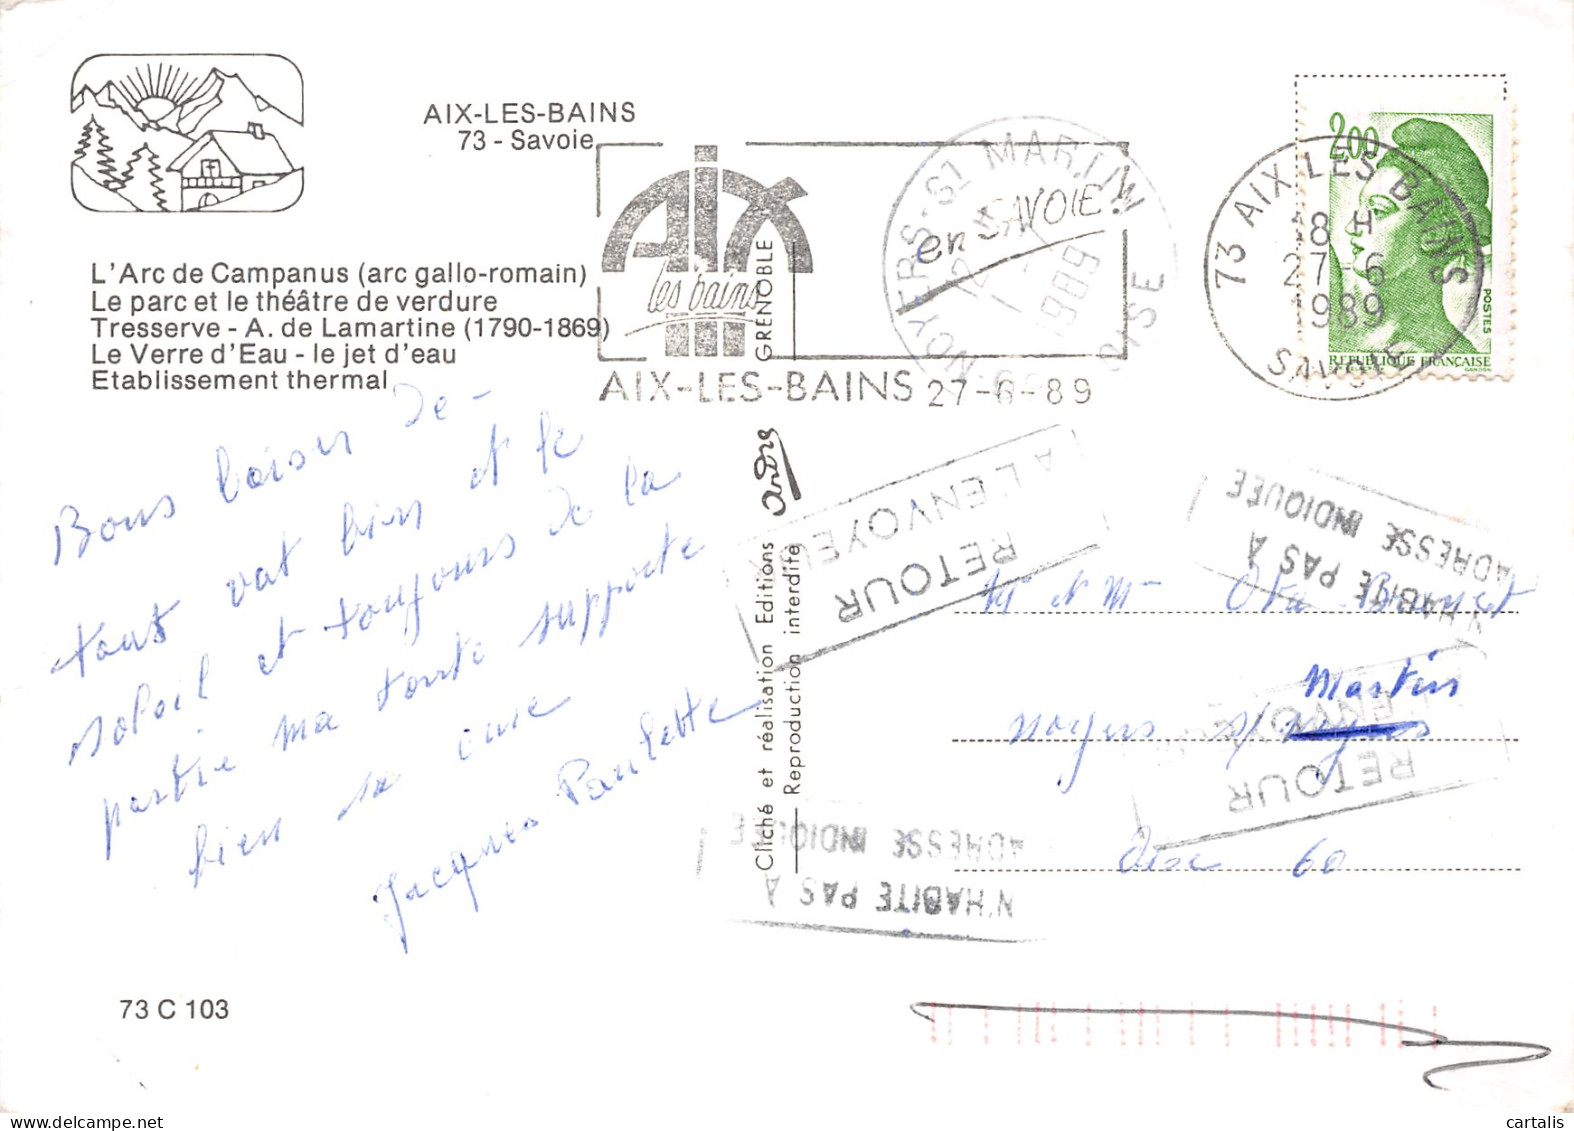 AIX-LES-BAINS
73 - Savoie
L'Arc de Campanus (arc gallo-romain)
Le parc et le théâtre de verdure
Tresserve - A. de Lamartine (1790-1869)
Le Verre d'Eau - le jet d'eau
Etablissement thermal
AIX
les bains
en SAVOIE!
AIX-LES-BAINS 27-6-89
NOYERS-ST MARTIN
1989
OISE
2,00
POSTES
REPUBLIQUE FRANÇAISE
73 AIX LES BAINS
18 H
27-6
1989
SAVOIE
Bons baiser de
tout vat bien et le
soleil et toujours de la
partie ma tante supporte
bien sa cure
Jacques Paulette
andré
GRENOBLE
Cliché et réalisation Editions
Reproduction interdite
RETOUR
A L'ENVOYEUR
N'HABITE PAS À
ADRESSE INDIQUÉE
M et Mme
Martin
Noyers St
Oise 60
RETOUR
L'ENVOYEUR
N'HABITE PAS À
ADRESSE INDIQUÉE
73 C 103
cartalis
www.delcampe.net